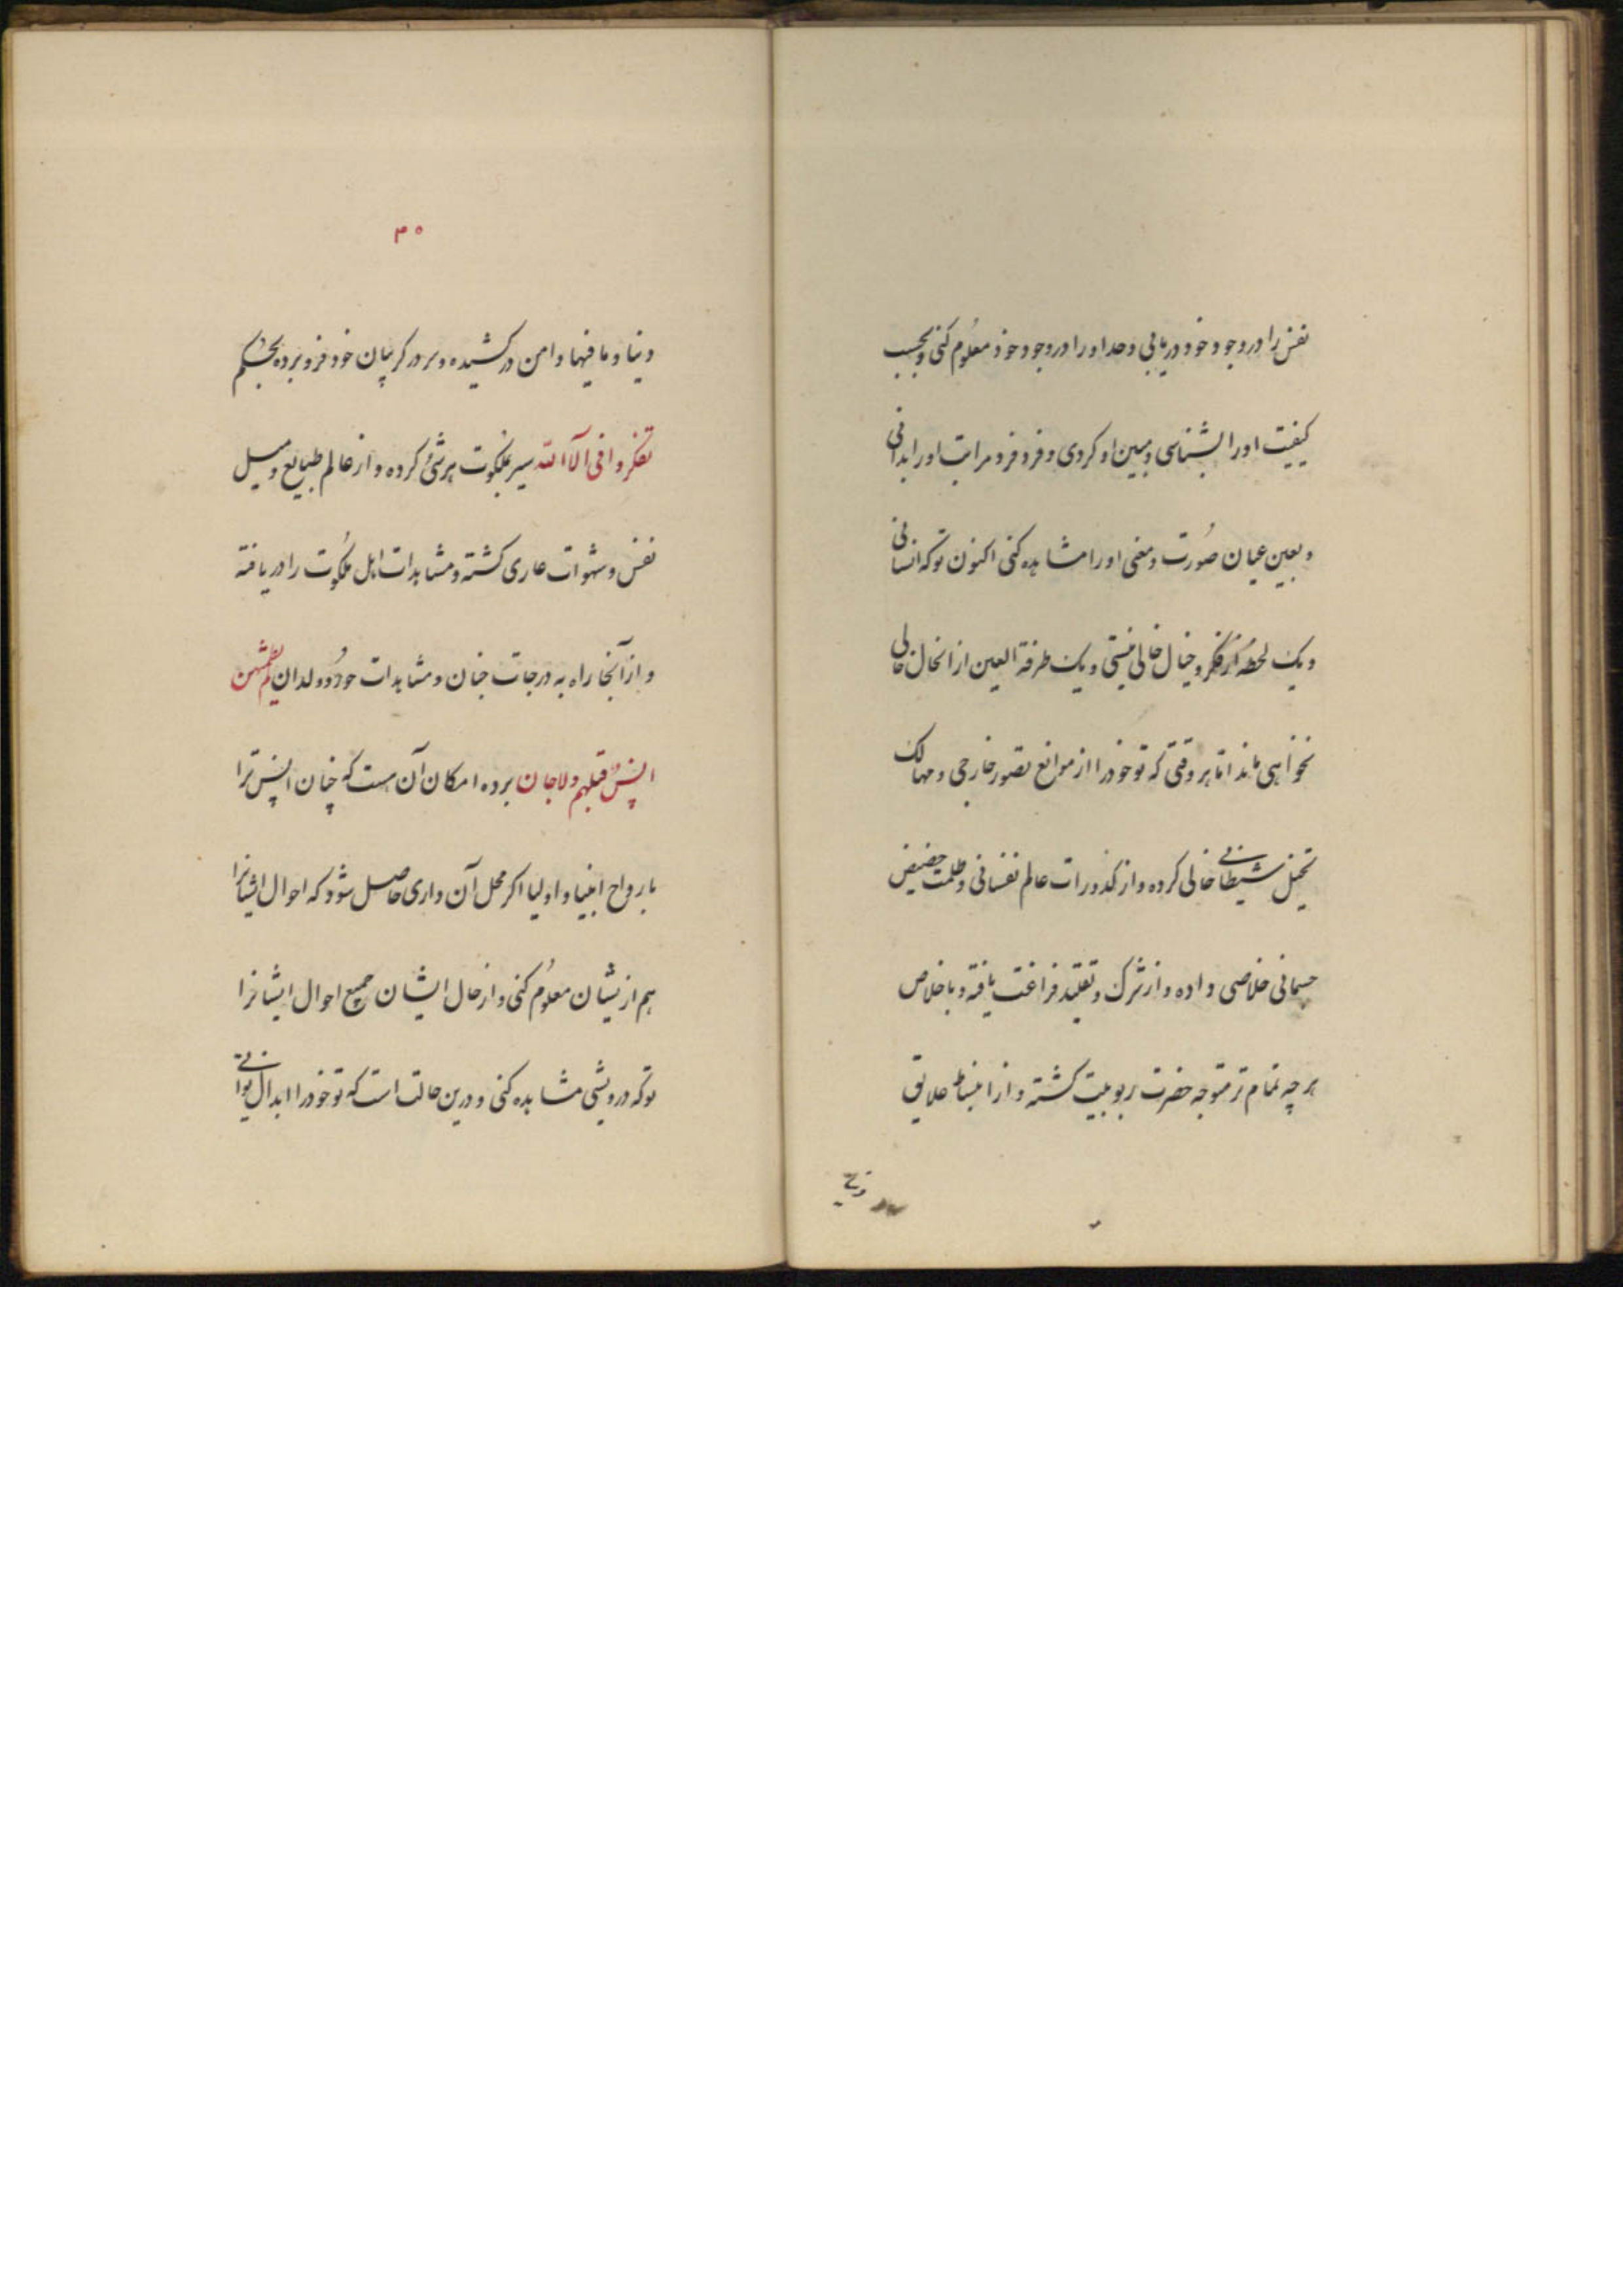 نفس را در وجود خود دریابی و حد او را در وجود خود معلوم کنی و بحسب
کیفیت او را بشناسی و مبین او کردی و فرو فرو مراتب او را بدانی
و بعین عیان صورت و معنی او را مشاهده کنی اکنون توکه انسانی
و یک لحظه از فکر و خیال خالی نیستی و یک طرفة العین از انحال خالی
نخواهی ماند اما هر وقتی که تو خود را از موانع تصور خارجی و مهالک
تخیل شیطانی خالی کرده و از کدورات عالم نفسانی و ظلمت حضیض
جسمانی خلاصی داده و از شرک و تقلید فراغت یافته و باخلاص
هر چه تمام تر متوجه حضرت ربوبیت کشته و از انبساط علایق
۳۰
دنیا و مافیها دامن درکشیده و سر در کریبان خود فرو برده بحکم
تفکروا فی آلاء الله سیر ملکوت هر شئ کرده و از عالم طبایع و میل
نفس و شهوات عاری کشته و مشاهدات اهل ملکوت را دریافته
و از آنجا راه به درجات جنان و مشاهدات حور و ولدان لم یطمثهن
انس قبلهم ولا جان برده امکان آن هست که چنان انس ترا
بارواح انبیا و اولیا اکر محل آن داری حاصل شود که احوال ایشانرا
هم از یشان معلوم کنی و از حال ایشان جمیع احوال ایشانرا
توکه درویشی مشاهده کنی و درین حالت است که تو خود را ابدال توانی